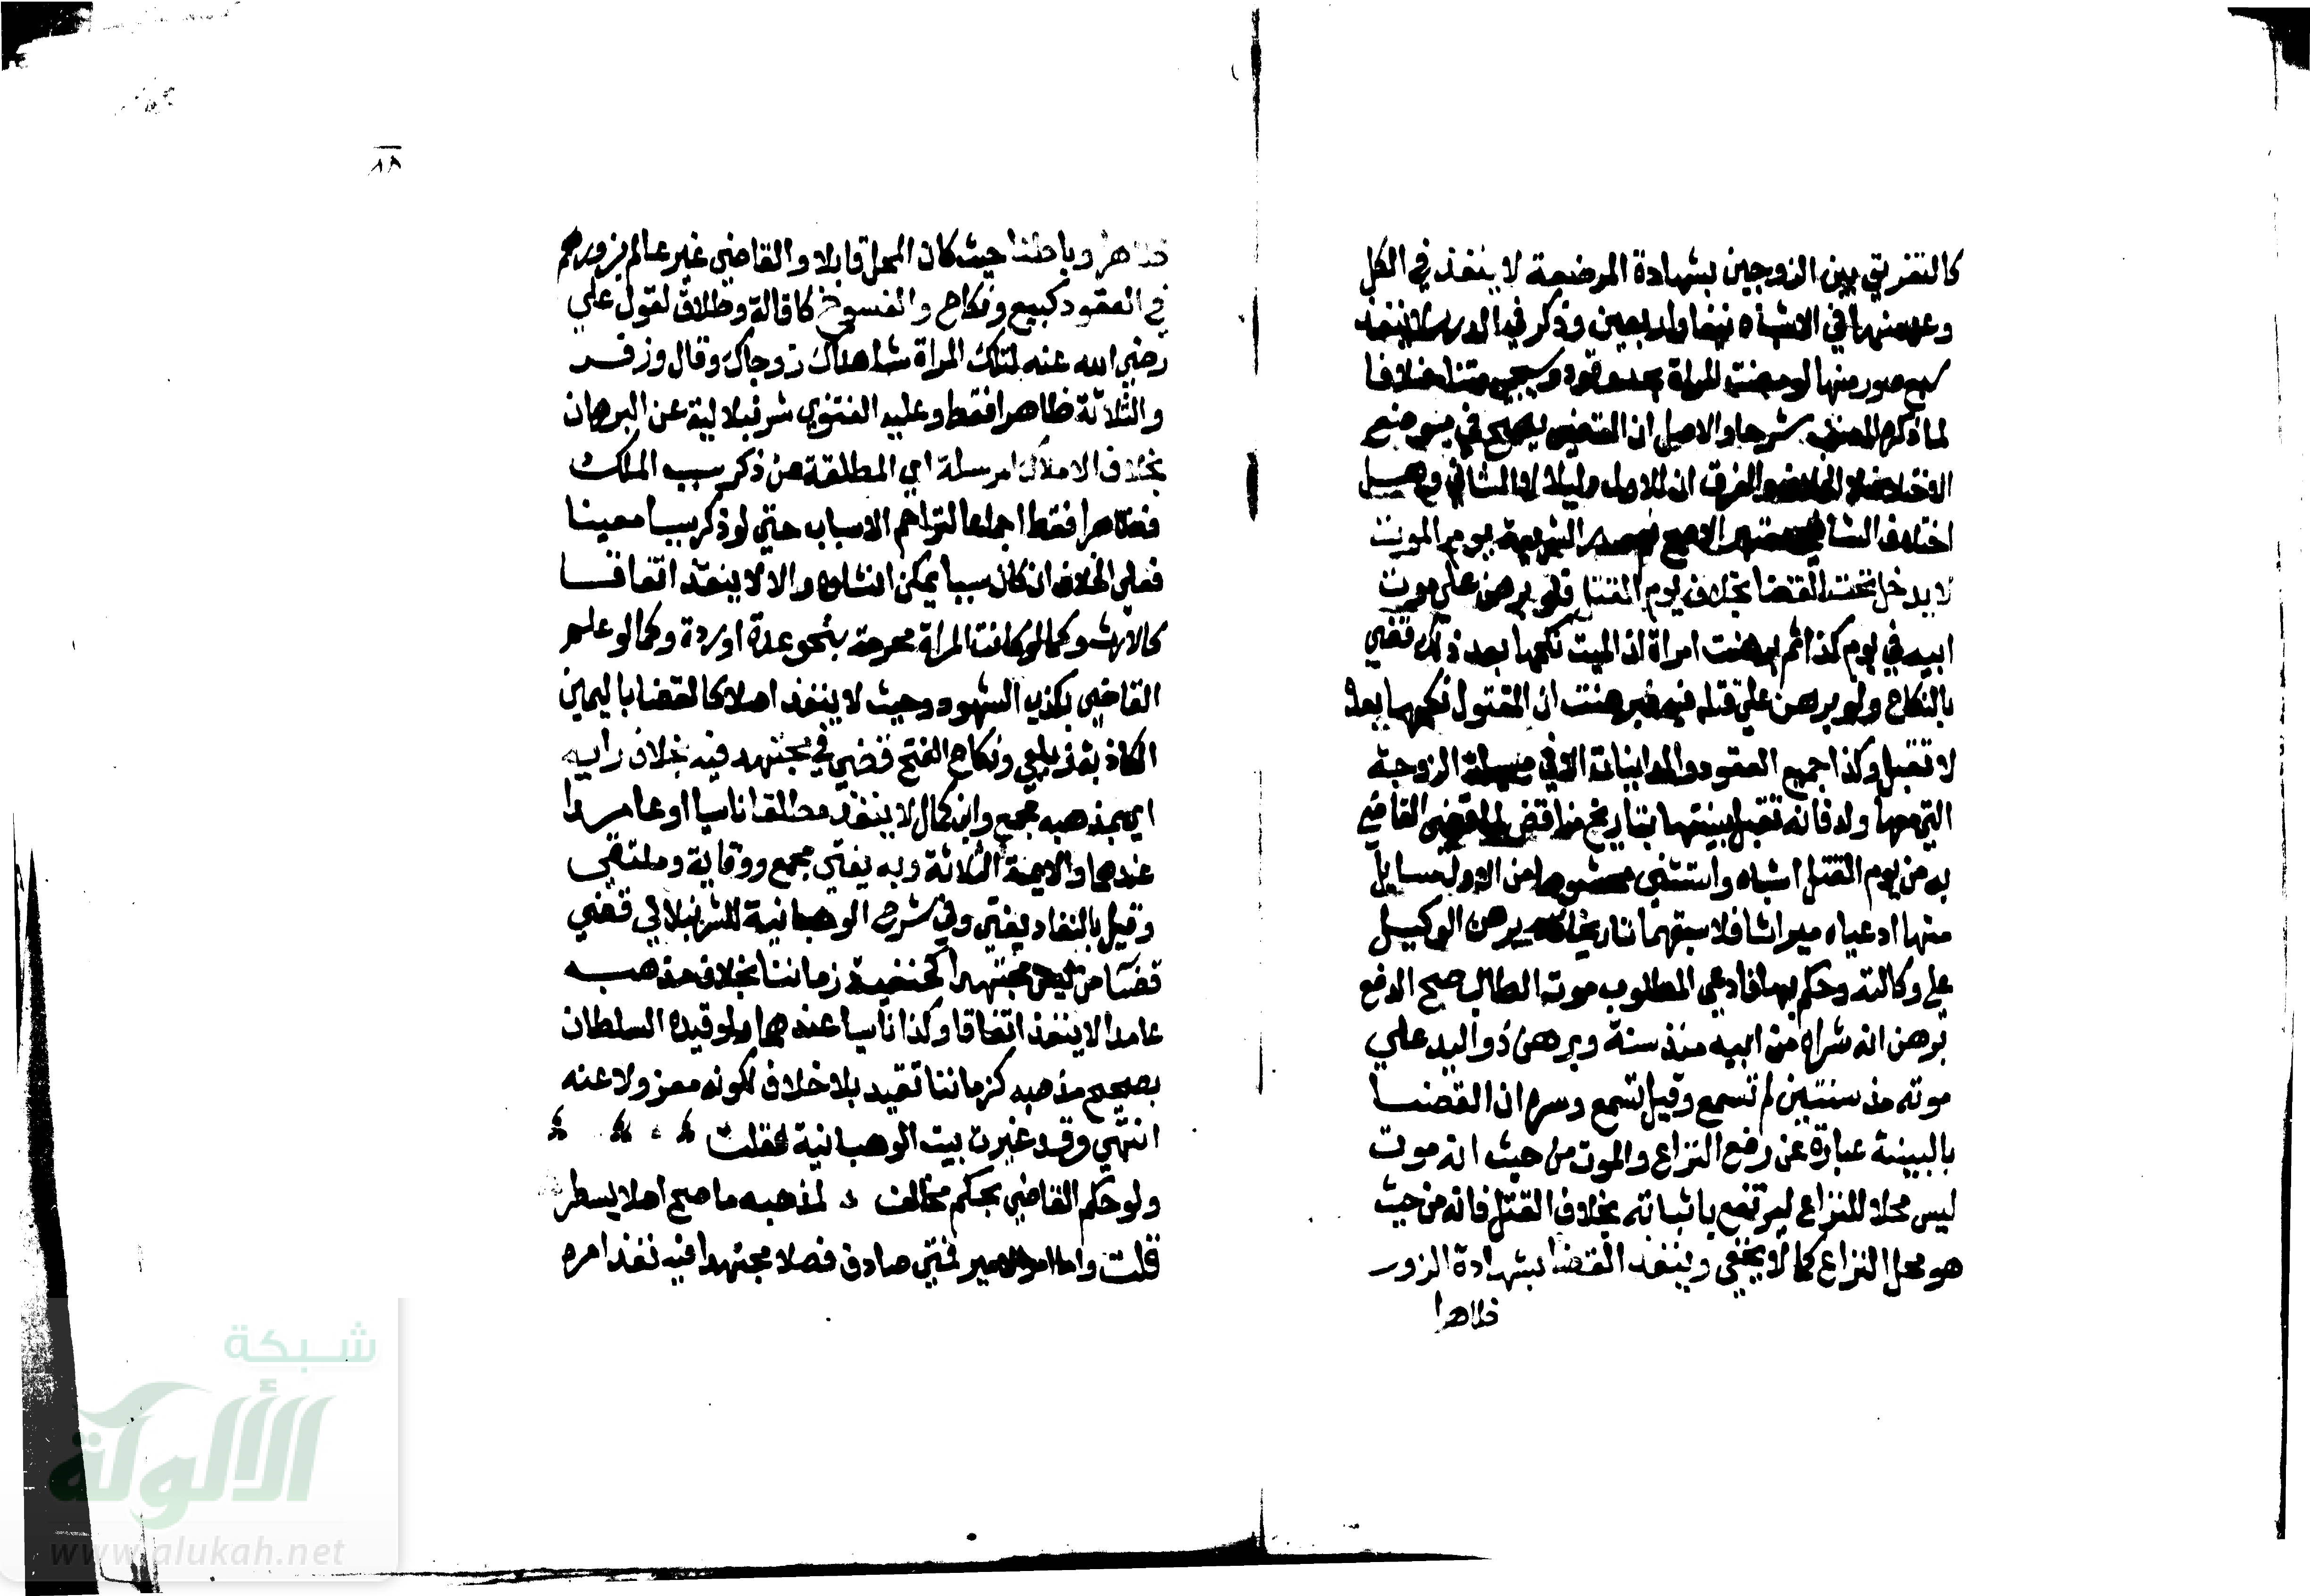 كالتفريق بين الزوجين بشهادة المرضعة لا ينفذ في الكل
وعد منها في الاشباه نيفا واربعين وذكر في الدرر لا ينفذ
سبع صور منها لو قضت المراة بحد وقود وسيجي متنا خلافا
لما ذكره المصنف شرحا والاصل ان القضي يصح في موضع
الاختلاف لا الخلاف والفرق ان للاول دليلا لا الثاني وهل
اختلاف الشافعي معتبر الاصح نعم صدر الشريعة يوم الموت
لا يدخل تحت القضا بخلاف يوم القتل فلو برهن علي موت
ابيه في يوم كذا ثم برهنت امراة ان الميت نكحها بعد ذلك قضي
بالنكاح ولو برهن علي قتله فيه فبرهنت ان المقتول نكحها بعده
لا تقبل وكذا جميع العقود والمداينات الا في مسالة الزوجة
التي معها ولد فانه تقبل بينتها بتاريخ مناقض لما قضي القاضي
به من يوم القتل اشباه واستثني محشوها من الاول مسايل
منها ادعياه ميراثا فلاسبقهما تاريخا برهن الوكيل
علي وكالته وحكم بها فادعي المطلوب موت الطالب صح الدفع
برهن انه شراه من ابيه منذ سنة وبرهن ذو اليد علي
موته منذ سنتين لم تسمع وقيل تسمع وسره ان القضا
بالبينة عبارة عن رفع النزاع والموت من حيث انه موت
ليس محلا للنزاع ليرتفع باثباته بخلاف القتل فانه من حيث
هو محل النزاع كما لا يخفي وينفذ القضا بشهادة الزور
ظاهرا
٨٨
ظاهرا وباطنا حيث كان المحل قابلا والقاضي غير عالم بزورهم
في العقود كبيع ونكاح والفسوخ كاقالة وطلاق لقول علي
رضي الله عنه لتلك المراة شاهداك زوجاك وقال وزفر
والثلاثة ظاهرا فقط وعليه الفتوي شرنبلالية عن البرهان
بخلاف الاملاك المرسلة اي المطلقة عن ذكر سبب الملك
فظاهرا فقط اجماعا لتزاحم الاسباب حتي لو ذكر سببا معينا
فعلي الخلاف ان كان سببا يمكن انشاوه والا لا ينفذ اتفاقا
كالارث وكما لو كانت المراة محرمة بنحو عدة او ردة وكما لو علم
القاضي بكذب الشهود وحيث لا ينفذ اصلا كالقضا باليمين
الكاذبة زيلعي ونكاح الفتح قضي في مجتهد فيه بخلاف رايه
اي بمذهبه مجمع وابن كمال لا ينفذ مطلقا ناسيا او عامدا
عندهما والايمة الثلاثة وبه يفتي مجمع ووقاية وملتقي
وقيل بالنفاد يفتي وفي شرح الوهبانية للشرنبلالي قضي
قضا من ليس مجتهدا كحنفية زماننا بخلاف مذهبه
عامدا لا ينفذ اتفاقا وكذا ناسيا عندهما ولو قيده السلطان
بصحيح مذهبه كزماننا تقيد بلا خلاف لكونه معزولا عنه
انتهي وقد غيرت بيت الوهبانية فقلت
ولو حكم القاضي بحكم مخالف لمذهبه ما صح اصلا يسطر
قلت واما امر الامير فمتي صادف فصلا مجتهدا فيه نفذ امره
شبكة
الألوكة
www.alukah.net